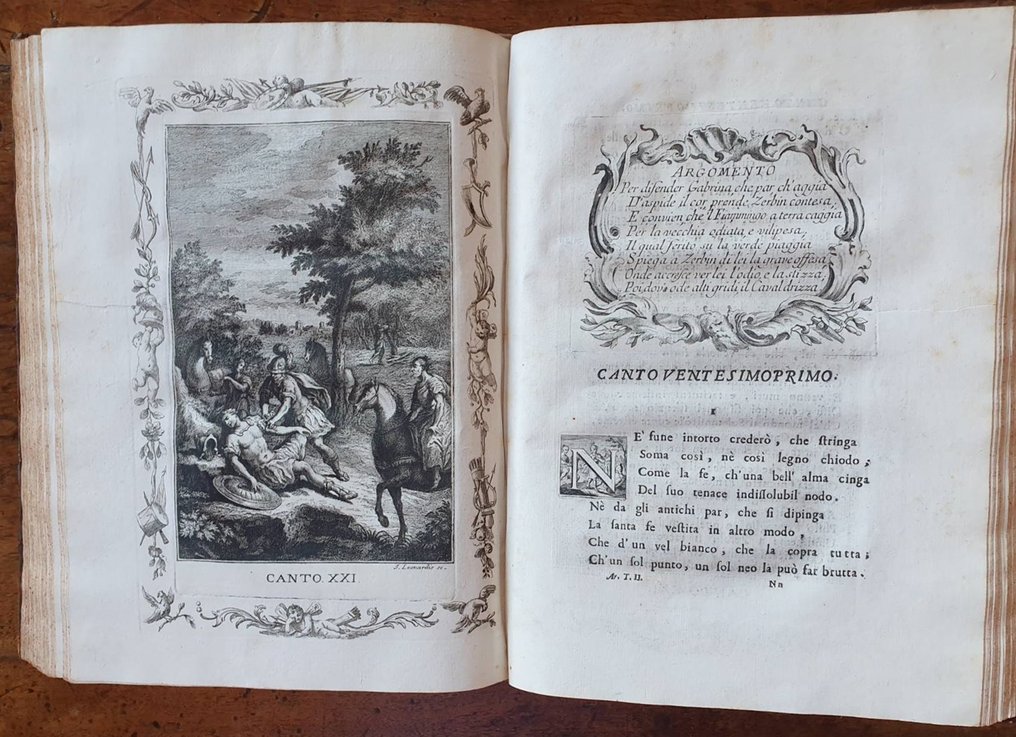 CANTO XXI
ARGOMENTO
Per difender Gabrina, che par ch'aggia
D'aspide il cor prende, Zerbin contesa,
E convien che l' a terra caggia
Per la vecchia odiata, e vilipesa,
Il qual ferito su la verde piaggia
Spiega a Zerbin di lei la grave offesa,
Onde accresce ver lei l'odio, e la stizza,
Poi dov' ode alti gridi, il Caval drizza
CANTO VENTESIMOPRIMO.
I
NE' fune intorto crederò, che ſtringa
Soma così, nè così legno chiodo,
Come la fe, ch'una bell' alma cinga
Del ſuo tenace indiſſolubil nodo.
Nè da gli antichi par, che ſi dipinga
La ſanta fe veſtita in altro modo,
Che d'un vel bianco, che la copra tutta;
Ch'un ſol punto, un ſol neo la può far brutta.
Ar. T. II.
Nn